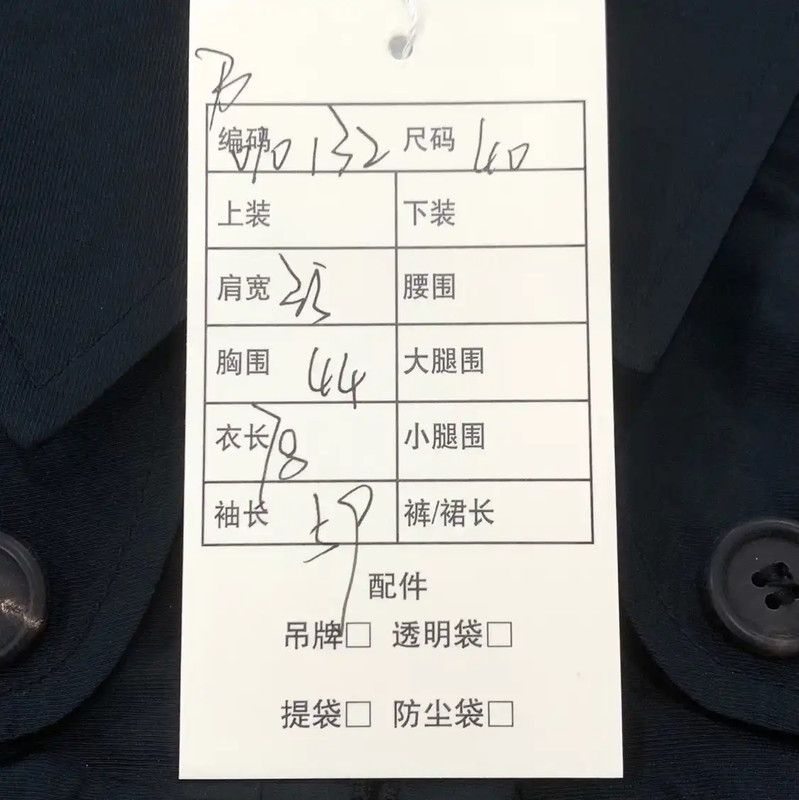 编码 010132 尺码 40
上装 下装
肩宽 35 腰围
胸围 44 大腿围
衣长 78 小腿围
袖长 59 裤/裙长
配件
吊牌□ 透明袋□
提袋□ 防尘袋□